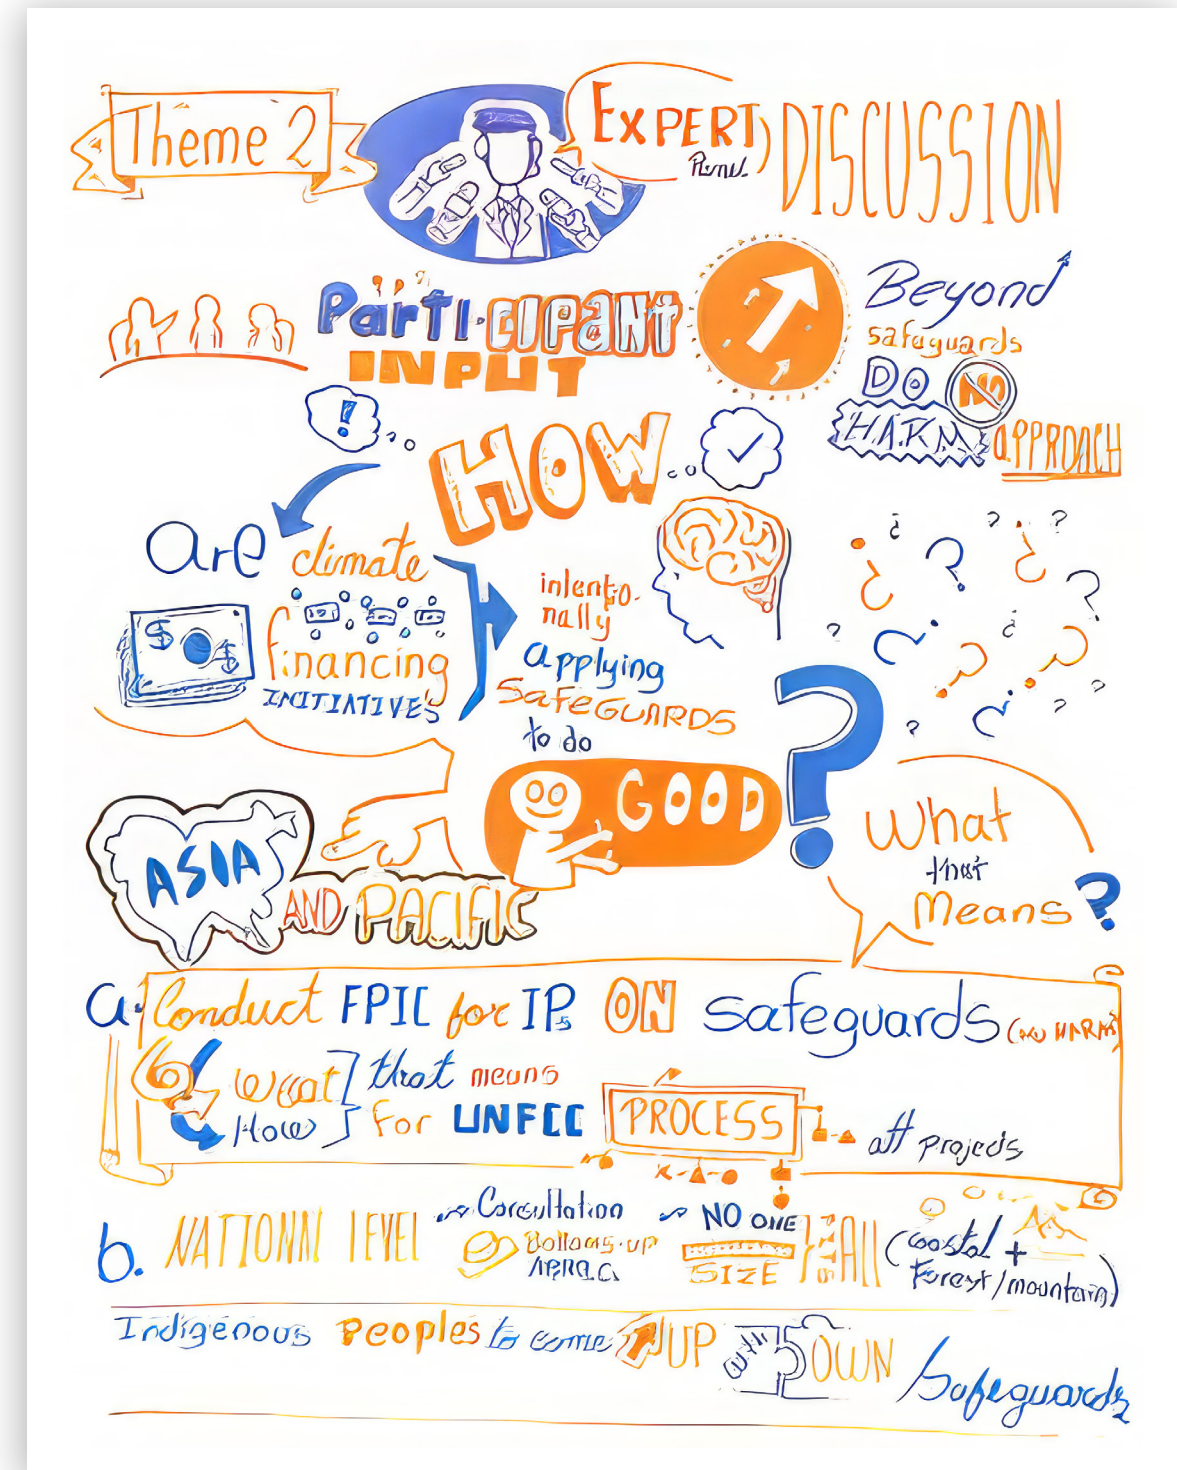 Theme 2
EXPERT
Panel
DISCUSSION
PartiCiPaNT
INPUT
Beyond
safeguards
DO NO
HARM APPROACH
!
HOW
are climate
financing
INITIATIVES
$ $
intentio-
nally
applying
SafeGUARDS
to do
GOOD ?
What
that
Means ?
ASIA
AND PACIFIC
a. Conduct FPIC for IPs ON Safeguards (DO NO HARM)
What that means
How for UNFCC PROCESS all projects
b. NATIONAL LEVEL Consultation
Bottoms-up
NO ONE
SIZE
FITS
All
(coastal +
Forest/mountains)
Indigenous Peoples to come UP with OWN Safeguards